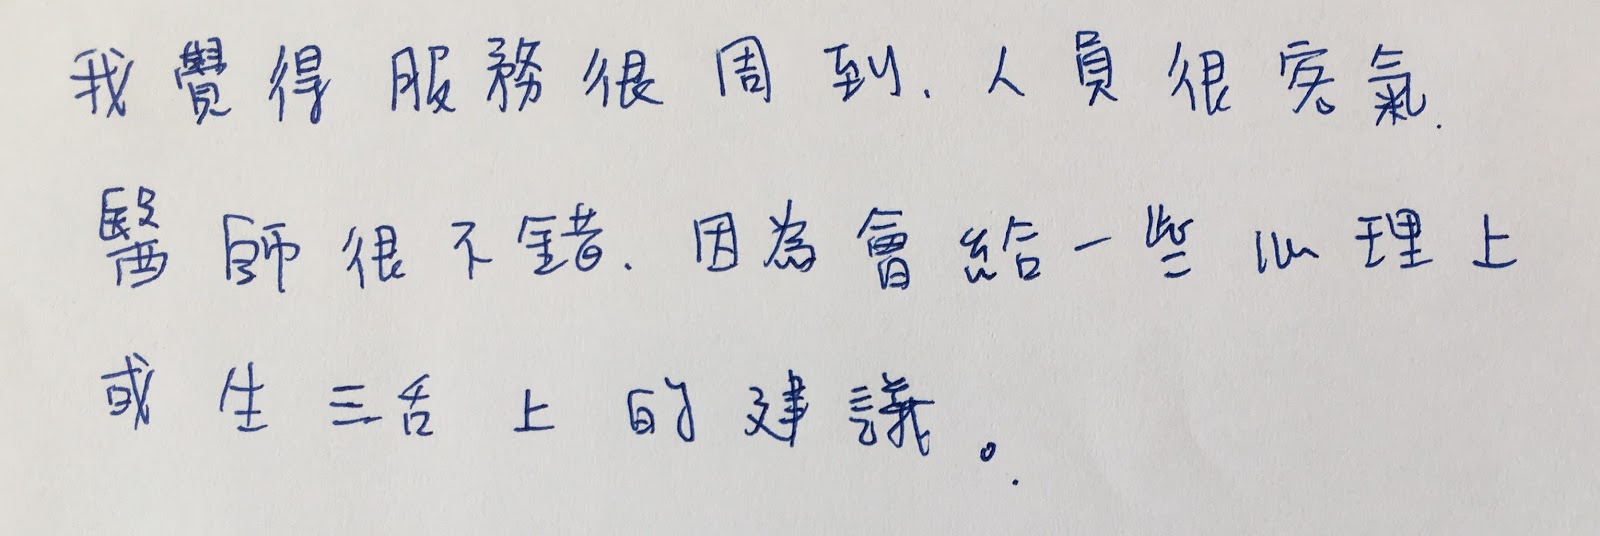 我覺得服務很周到.人員很客氣.
醫師很不錯.因為會給一些心理上
或生活上的建議。.